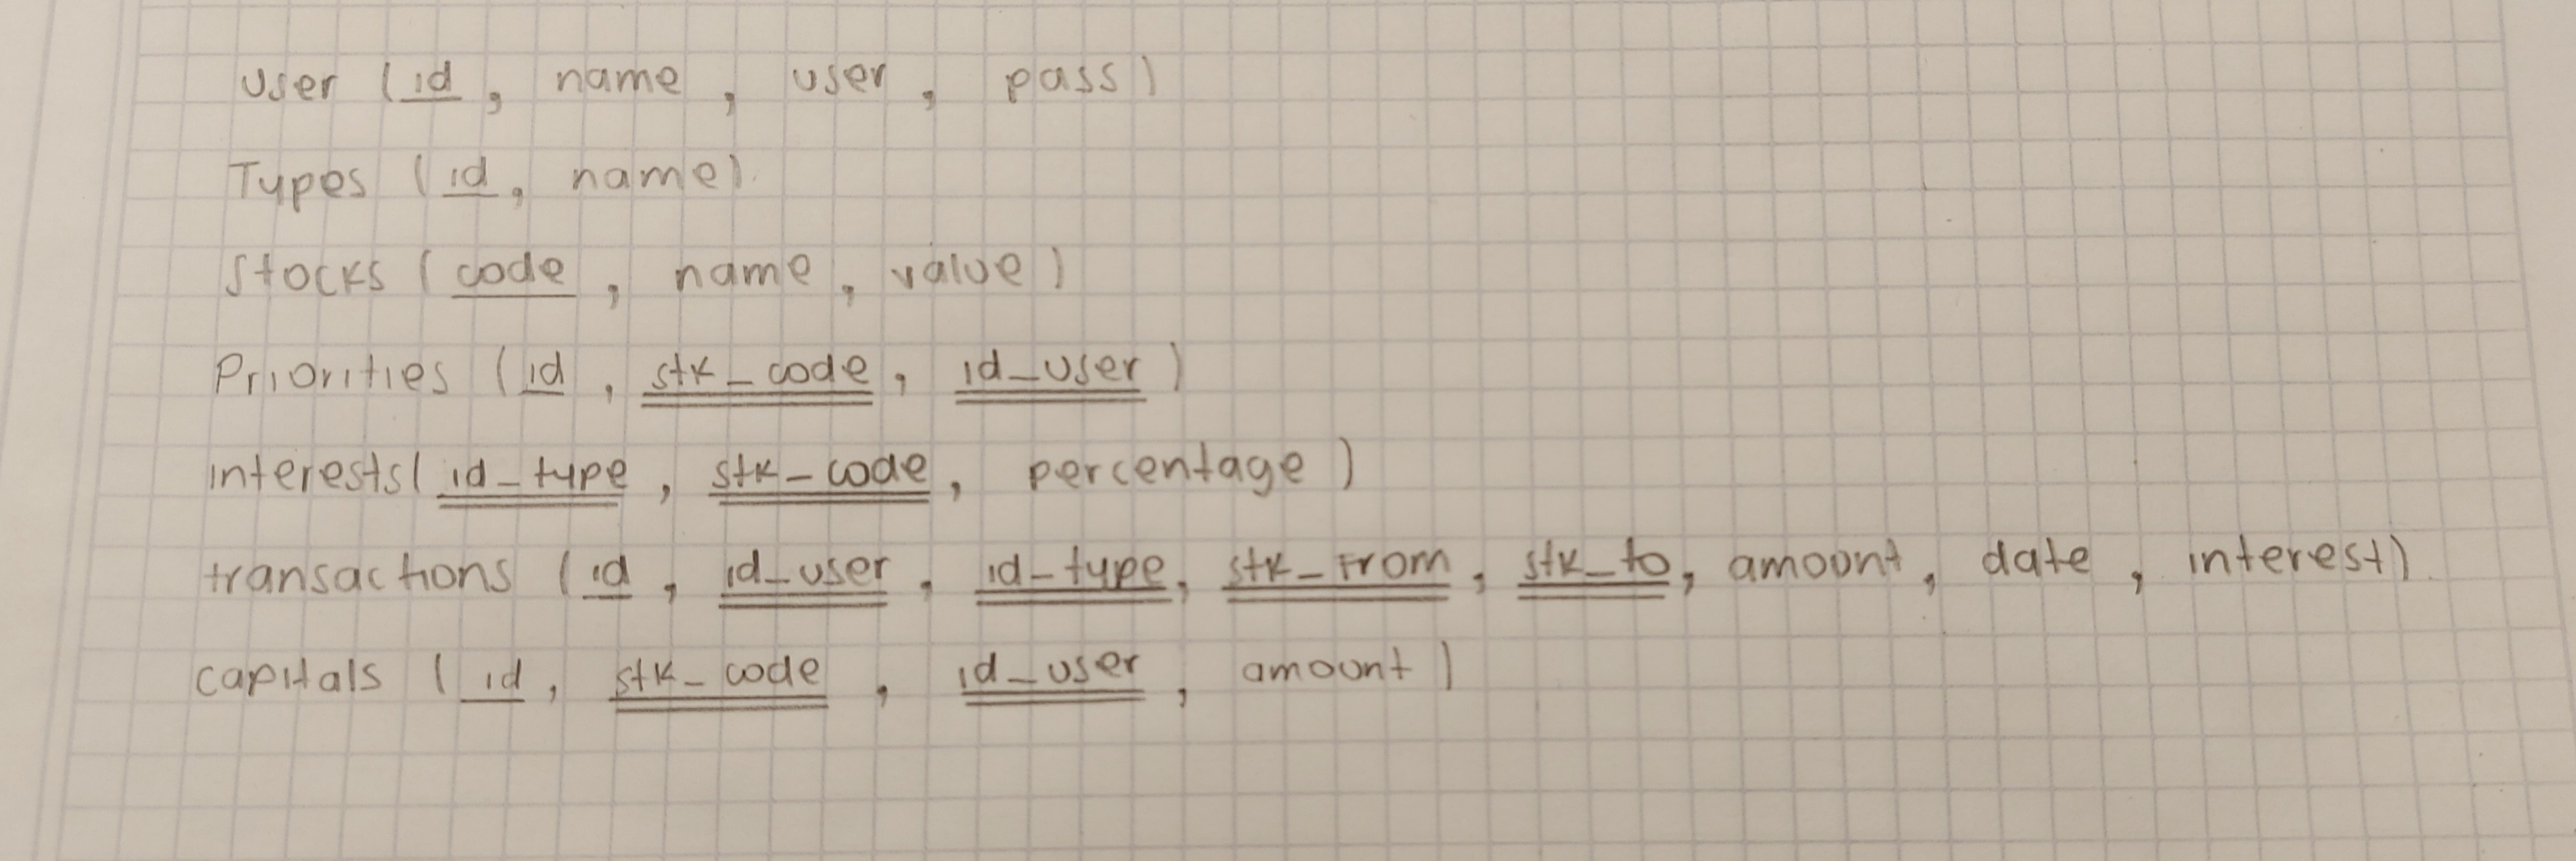 User (id, name, user, pass)
Types (id, name).
Stocks (code, name, value)
Priorities (id, stk_code, id_user)
interests(id_type, stk_code, percentage)
transactions (id, id_user, id_type, stk_from, stk_to, amount, date, interest).
capitals (id, stk_code, id_user, amount)